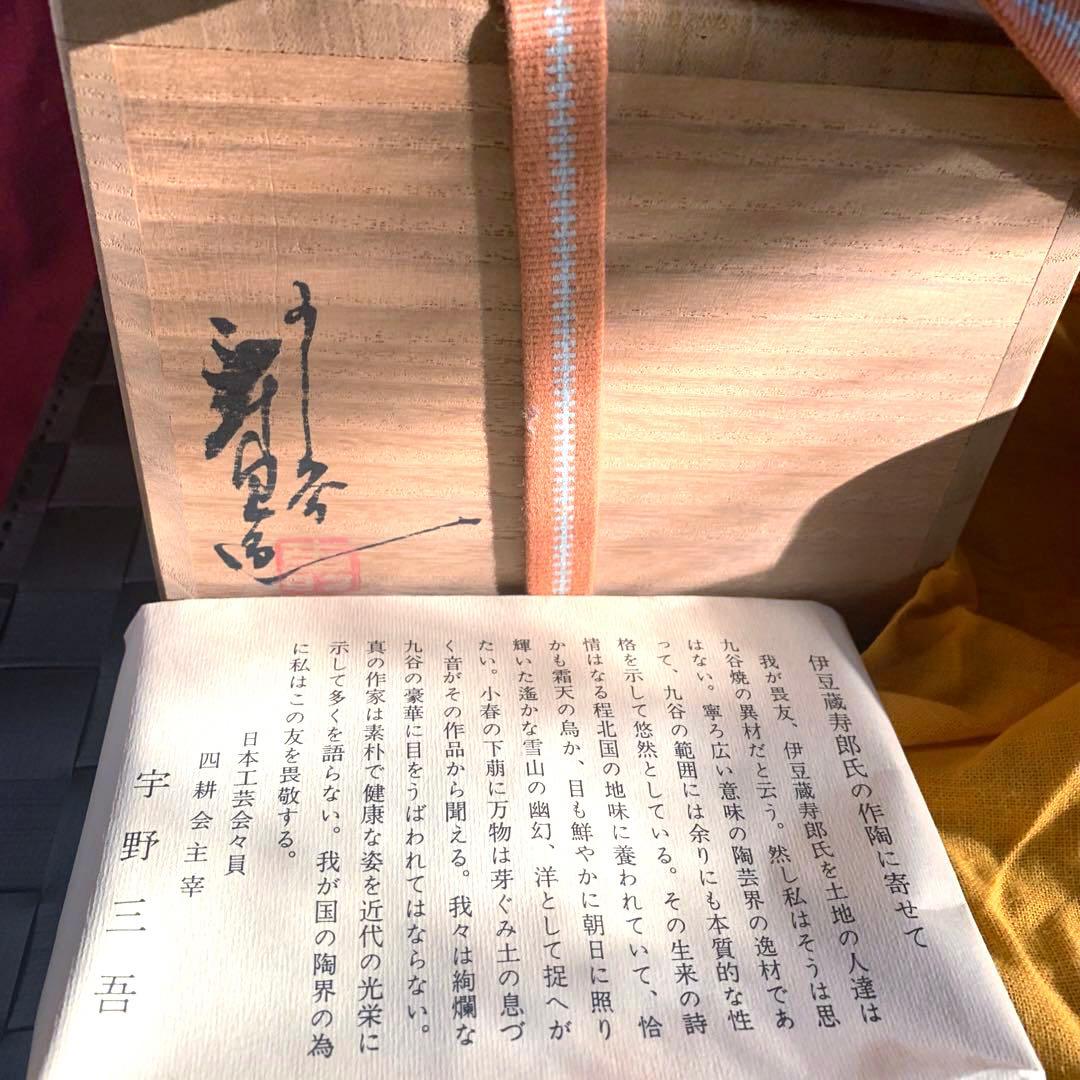 伊豆蔵寿郎氏の作陶に寄せて
我が畏友、伊豆蔵寿郎氏を土地の人達は
九谷焼の異材だと云う。然し私はそうは思
はない。寧ろ広い意味の陶芸界の逸材であ
って、九谷の範囲には余りにも本質的な性
格を示して悠然としている。その生来の詩
情はなる程北国の地味に養われていて、恰
かも霜天の烏か、目も鮮やかに朝日に照り
輝いた遙かな雪山の幽幻、洋として捉へが
たい。小春の下萠に万物は芽ぐみ土の息づ
く音がその作品から聞える。我々は絢爛な
九谷の豪華に目をうばわれてはならない。
真の作家は素朴で健康な姿を近代の光栄に
示して多くを語らない。我が国の陶界の為
に私はこの友を畏敬する。
日本工芸会々員
四耕会主宰
宇野三吾